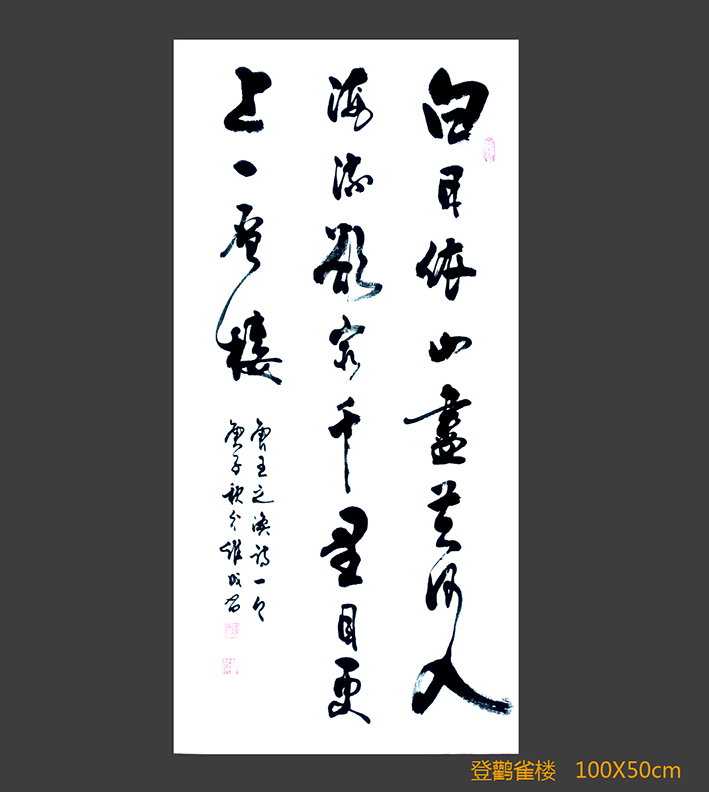 白日依山盡黄河入
海流欲窮千里目更
上一層樓
唐王之渙詩一首
庚子秋分維成書
登鹳雀楼 100X50cm